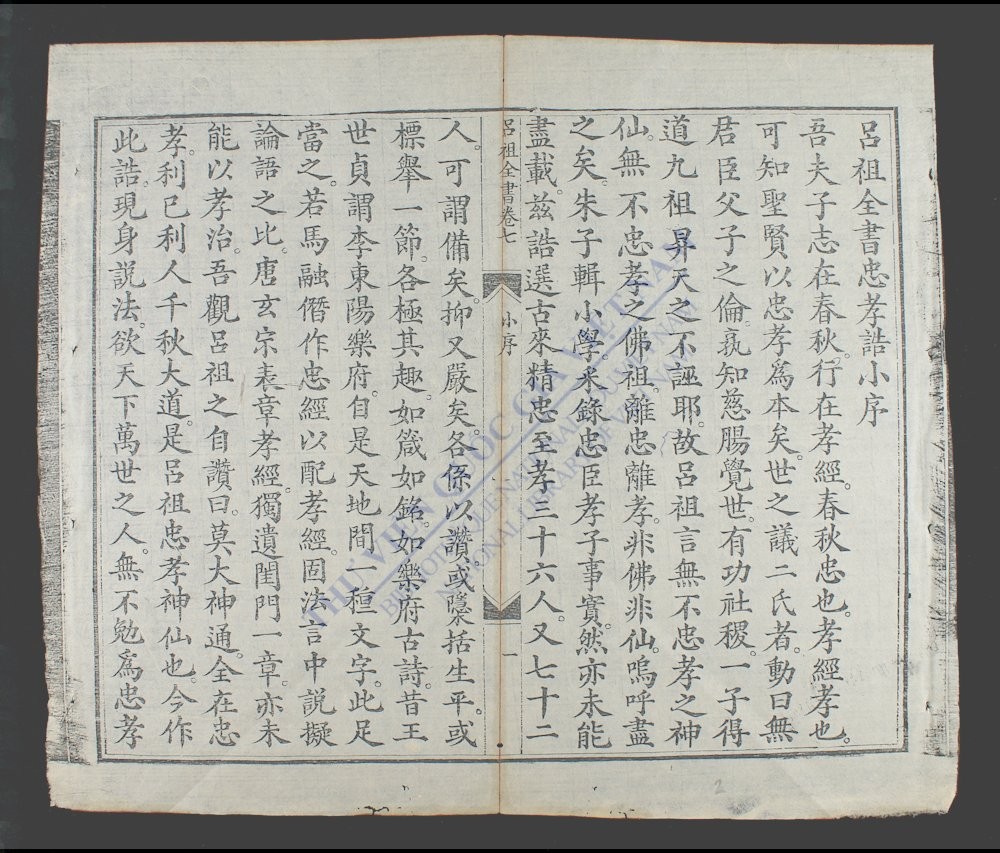 呂祖全書忠孝誥小序
吾夫子志在春秋。行在孝經。春秋忠也。孝經孝也。
可知聖賢以忠孝爲本矣。世之議二氏者。動曰無
君臣父子之倫。孰知慈腸覺世。有功社稷。一子得
道九祖昇天之不誣耶。故呂祖言無不忠孝之神
仙。無不忠孝之佛祖。離忠離孝。非佛非仙。嗚呼盡
之矣。朱子輯小學。采錄忠臣孝子事實。然亦未能
盡載。茲誥選古來精忠至孝三十六人。又七十二
呂祖全書卷七 小序 一
人。可謂備矣。抑又嚴矣。各係以讚。或隱括生平。或
標舉一節。各極其趣。如箴如銘。如樂府古詩。昔王
世貞謂李東陽樂府。自是天地間一種文字。此足
當之。若馬融僭作忠經以配孝經。固法言中說擬
論語之比。唐玄宗表章孝經。獨遺閨門一章。亦未
能以孝治。吾觀呂祖之自讚曰。莫大神通。全在忠
孝。利己利人千秋大道。是呂祖忠孝神仙也。今作
此誥。現身說法。欲天下萬世之人。無不勉爲忠孝
THƯ VIỆN QUỐC GIA VIỆT NAM
BIBLIOTHÈQUE NATIONALE DU VIETNAM
NATIONAL LIBRARY OF VIETNAM
2